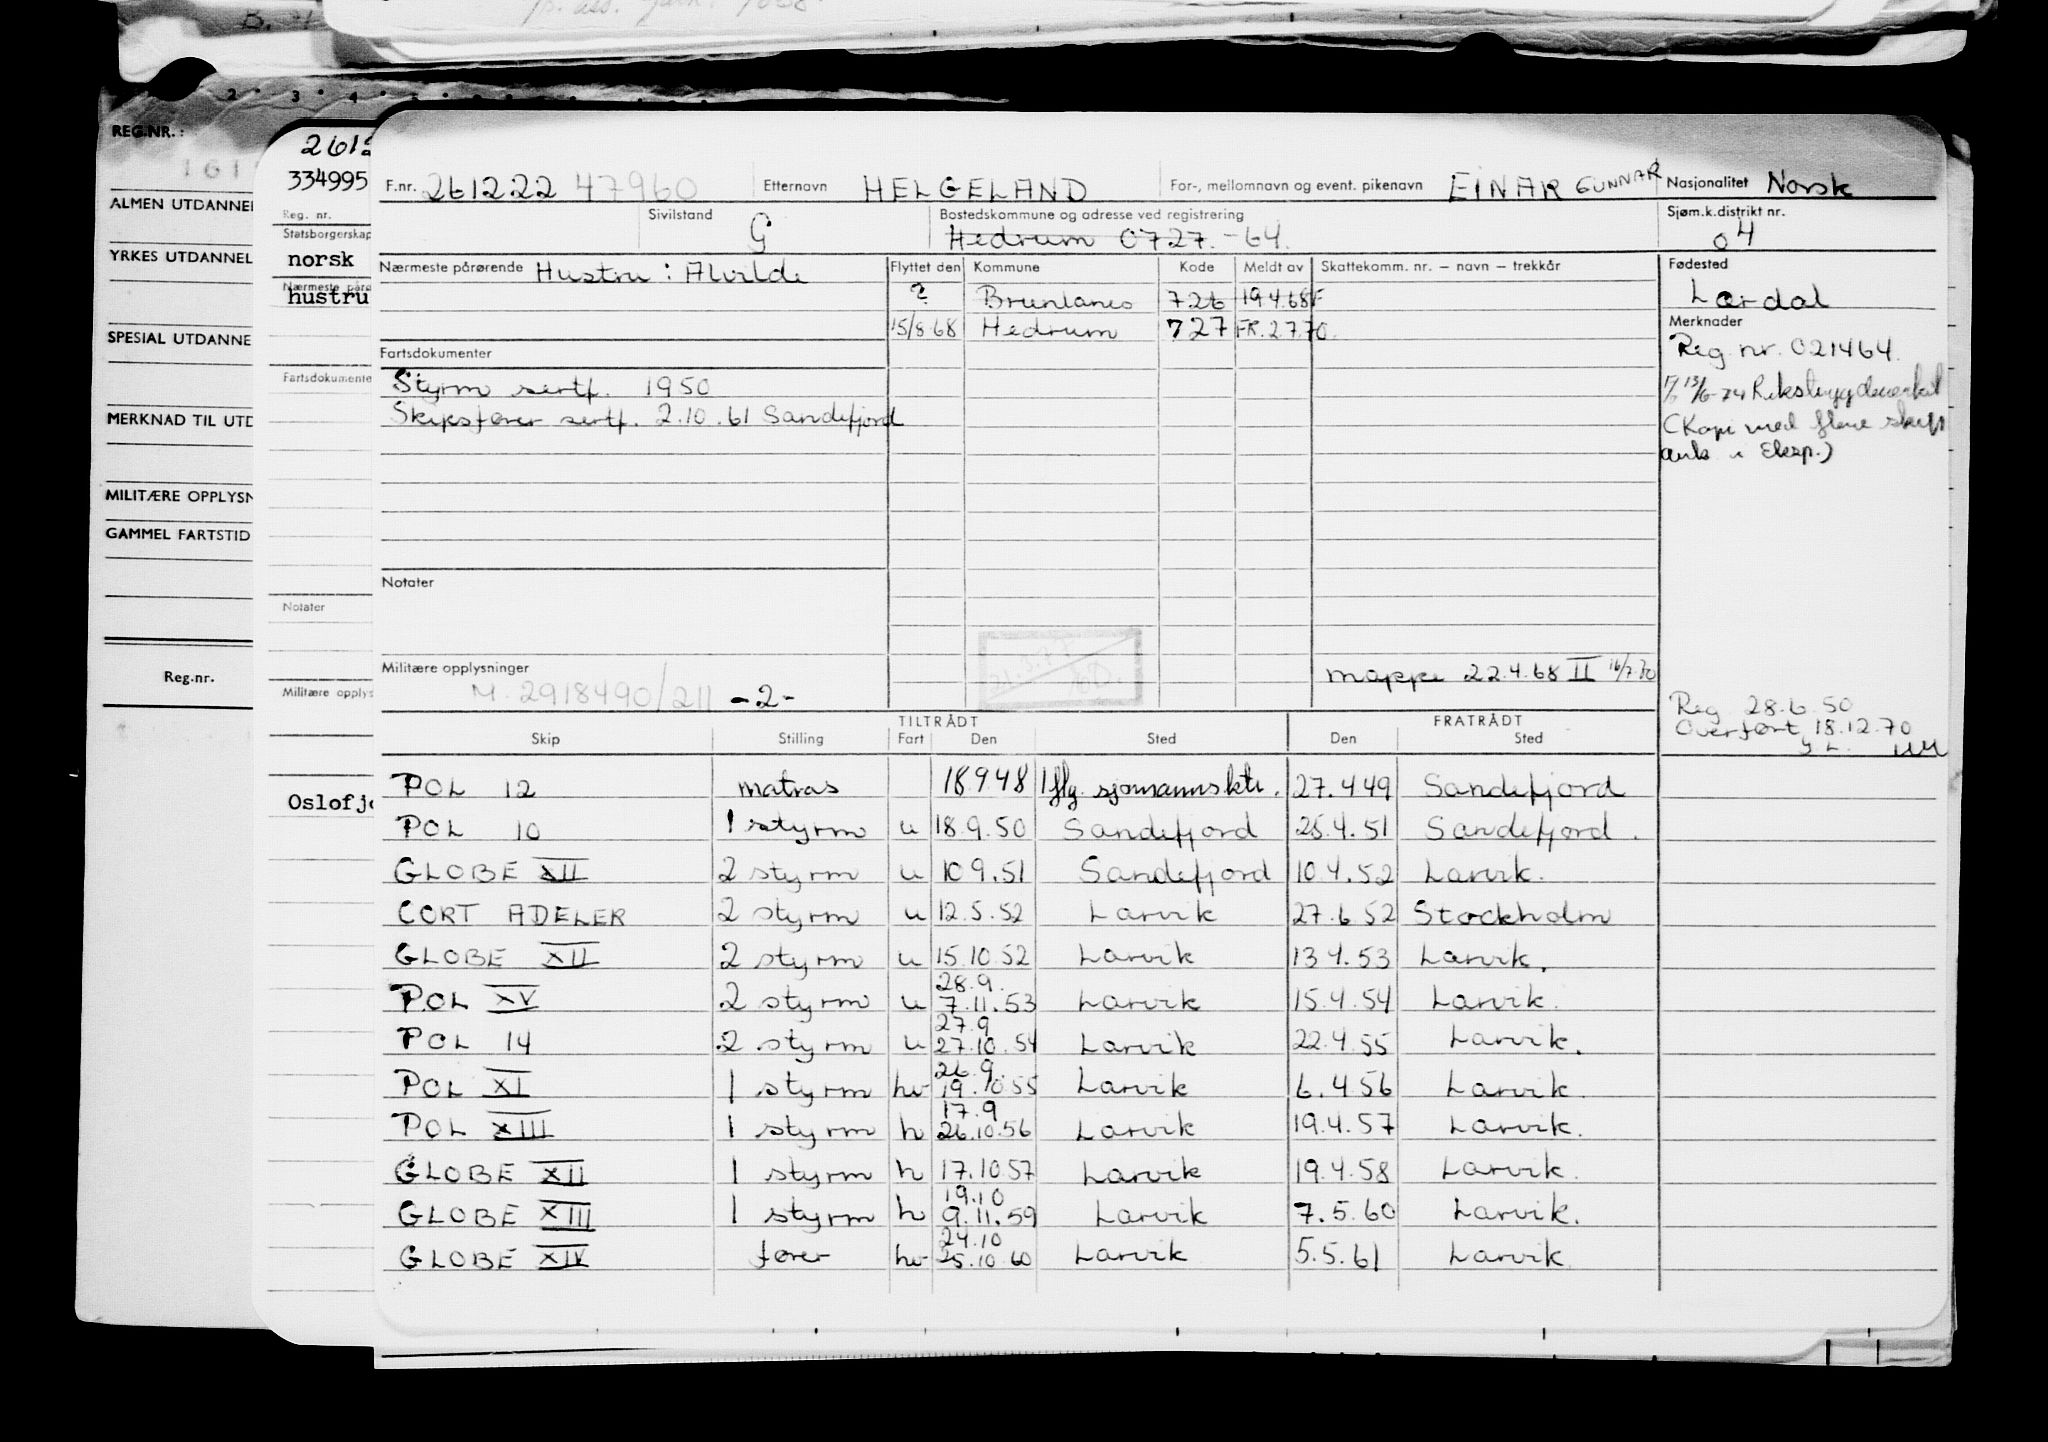 REG.NR.:
ALMEN UTDANNEL
YRKES UTDANNEL
SPESIAL UTDANNE
MERKNAD TIL UTD
MILITÆRE OPPLYSN
GAMMEL FARTSTID
Reg.nr.
334995
Reg. nr.
Statsborgerskap
norsk
Nærmeste påro
hustru
Fartsdokumente
Notater
Militære opplys
Oslofjo
F.nr. 261222 47960 Etternavn HELGELAND For-, mellomnavn og event. pikenavn EINAR GUNNAR Nasjonalitet Norsk
Sivilstand G Bostedskommune og adresse ved registrering Hedrum 0727.-64. Sjøm.k.distrikt nr. 04
Nærmeste pårørende Hustru: Alvilde Flyttet den Kommune Kode Meldt av Skattekomm. nr. – navn – trekkår Fødested
? Brunlanes 726 19.4.68F Lardal
15/8-68 Hedrum 727 FR.2.7.70. Merknader
Reg. nr. 021464.
Fartsdokumenter
Styrm sertf. 1950
Skipsfører sertf. 2.10.61 Sandefjord
13/6-74 Riksbygdeverket
(Kopi med flere skip
Eksp.)
Notater
Militære opplysninger mappe 22.4.68 II 16/7.70
M. 2918490/211 -2-
Reg 28.6.50
Overført 18.12.70
TILTRÅDT FRATRÅDT
Skip Stilling Fart Den Sted Den Sted
POL 12 matros 18.9.48 iflg. sjømannsktr. 27.4.49 Sandefjord
POL 10 1 styrm u 18.9.50 Sandefjord 25.4.51 Sandefjord.
GLOBE XII 2 styrm u 10.9.51 Sandefjord 10.4.52 Larvik.
CORT ADELER 2 styrm u 12.5.52 Larvik 27.6.52 Stockholm
GLOBE XII 2 styrm u 15.10.52 Larvik 13.4.53 Larvik.
28.9.
POL XV 2 styrm u 7.11.53 Larvik 15.4.54 Larvik.
27.9
POL 14 2 styrm u 27.10.54 Larvik 22.4.55 Larvik.
26.9.
POL XI 1 styrm hv 19.10.55 Larvik 6.4.56 Larvik.
17.9
POL XIII 1 styrm h 26.10.56 Larvik 19.4.57 Larvik.
GLOBE XII 1 styrm h 17.10.57 Larvik 19.4.58 Larvik.
19.10
GLOBE XIII 1 styrm h 9.11.59 Larvik 7.5.60 Larvik.
24.10
GLOBE XIV fører hv 25.10.60 Larvik 5.5.61 Larvik